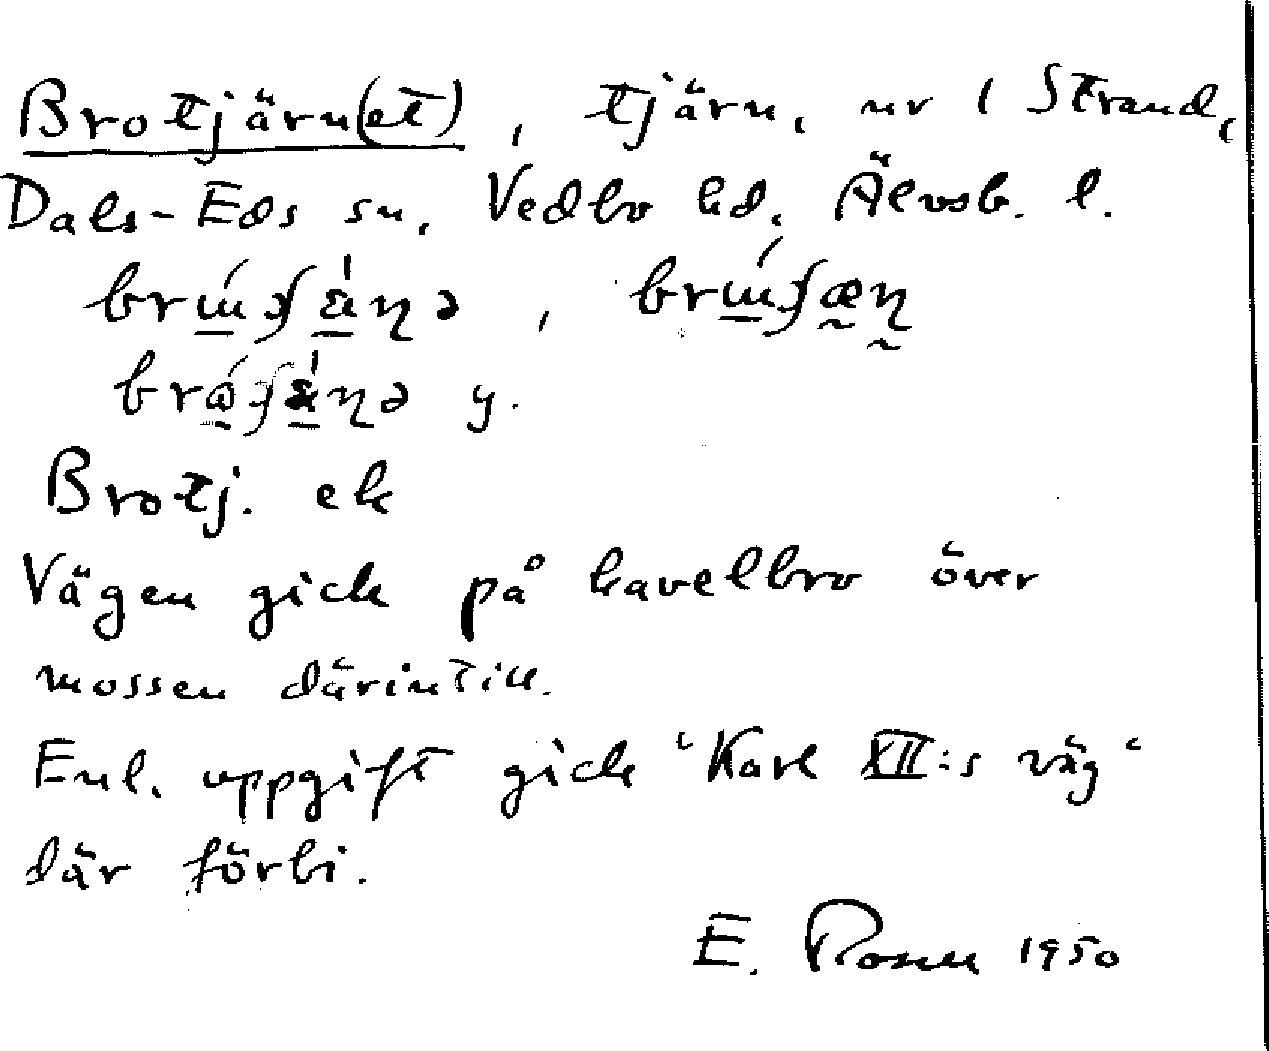 Brotjärn(et), tjärn, nr 1 Strand,
Dals-Eds sn, Vedbo hd, Älvsb. l.
y.
Brotj. ek
Vägen gick på kavelbro över
mossen därintill.
Enl. uppgift gick "Karl XII:s väg"
där förbi.
E. Rosell 1950